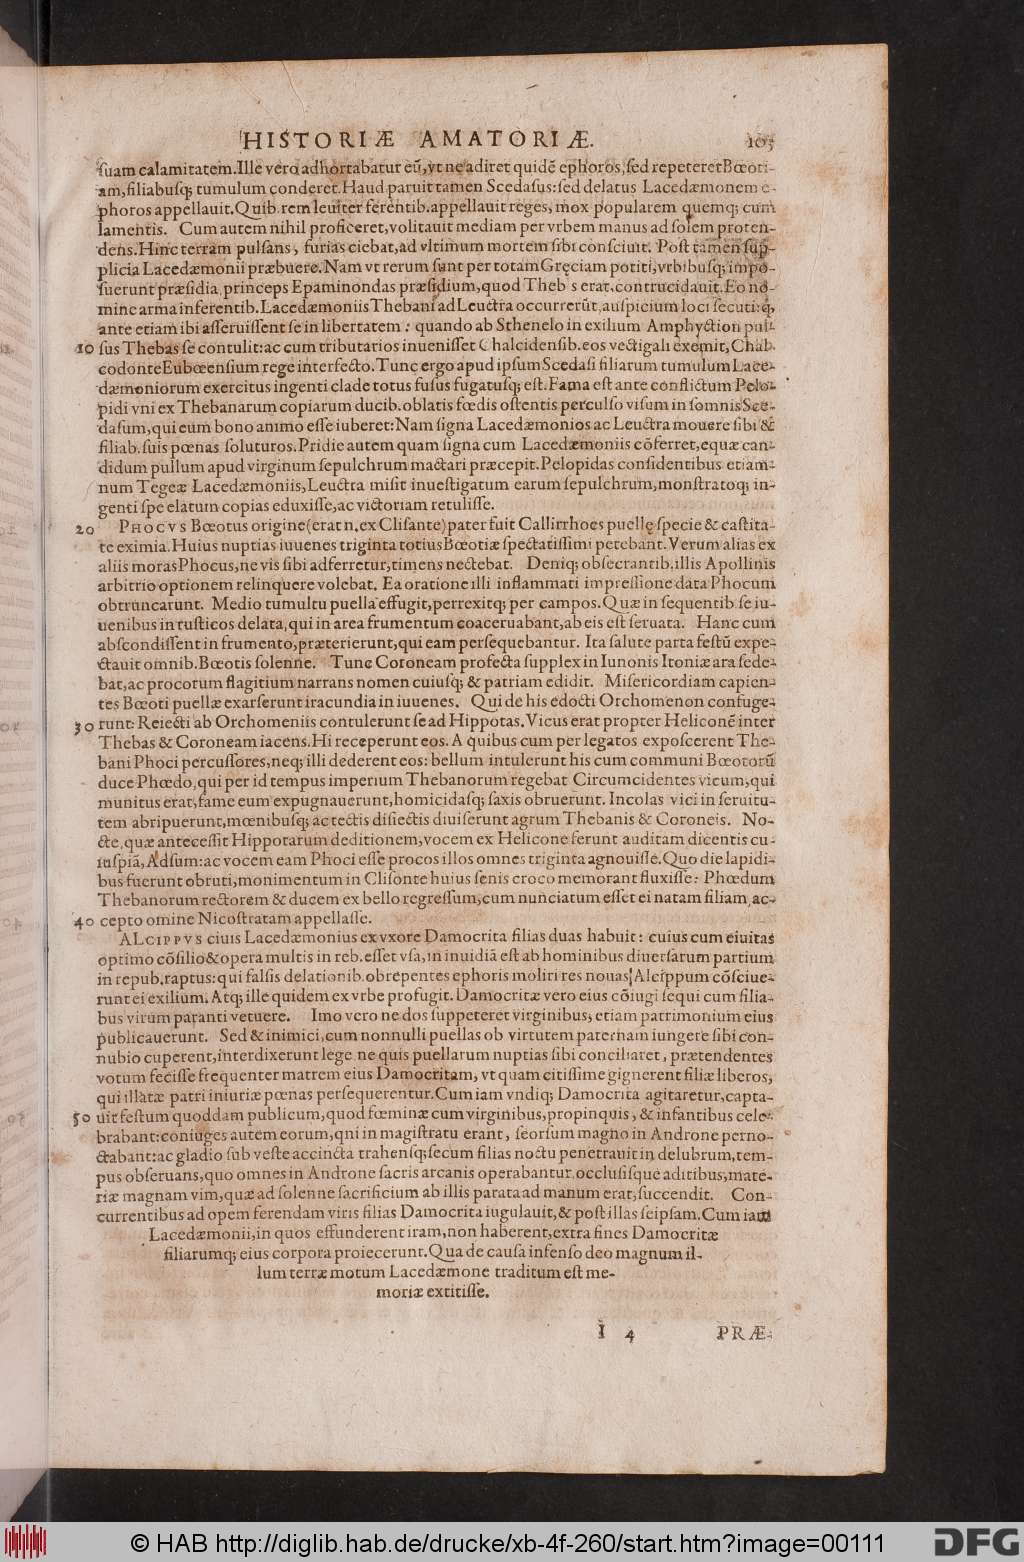 HISTORIÆ AMATORIÆ. 103
ſuam calamitatem. Ille vero adhortabatur eũ, vt ne adiret quidẽ ephoros, ſed repeteret Bœoti-
am, filiabuſq; tumulum conderet. Haud paruit tamen Scedaſus: ſed delatus Lacedæmonem e-
phoros appellauit. Quib. rem leuiter ferentib. appellauit reges, mox popularem quemq; cum
lamentis. Cum autem nihil proficeret, volitauit mediam per vrbem manus ad ſolem proten-
dens. Hinc terram pulſans, furias ciebat, ad vltimum mortem ſibi conſciuit. Poſt tamen ſup-
plicia Lacedæmonii præbuere. Nam vt rerum ſunt per totam Gręciam potiti, vrbibuſq; impo-
ſuerunt præſidia, princeps Epaminondas præſidium, quod Theb s erat, contrucidauit. Eo no-
mine arma inferentib. Lacedæmoniis Thebani ad Leuctra occurrerũt, auſpicium loci ſecuti: q,
ante etiam ibi aſſeruiſſent ſe in libertatem: quando ab Sthenelo in exilium Amphyction pul-
10 ſus Thebas ſe contulit: ac cum tributarios inueniſſet Chalcidenſib. eos vectigali exemit, Chab
codonte Eubœenſium rege interfecto. Tunc ergo apud ipſum Scedaſi filiarum tumulum Lace-
dæmoniorum exercitus ingenti clade totus fuſus fugatuſq; eſt. Fama eſt ante conflictum Pelo-
pidi vni ex Thebanarum copiarum ducib. oblatis fœdis oſtentis perculſo viſum in ſomnis Sce-
daſum, qui eum bono animo eſſe iuberet: Nam ſigna Lacedæmonios ac Leuctra mouere ſibi &
filiab. ſuis pœnas ſoluturos. Pridie autem quam ſigna cum Lacedæmoniis cõferret, equæ can-
didum pullum apud virginum ſepulchrum mactari præcepit. Pelopidas conſidentibus etiam-
num Tegeæ Lacedæmoniis, Leuctra miſit inueſtigatum earum ſepulchrum, monſtratoq; in-
genti ſpe elatum copias eduxiſſe, ac victoriam retuliſſe.
20 PHOCVS Bœotus origine (erat n. ex Cliſante) pater fuit Callirrhoes puellę ſpecie & caſtita-
te eximia. Huius nuptias iuuenes triginta totius Bœotiæ ſpectatiſſimi petebant. Verum alias ex
aliis moras Phocus, ne vis ſibi adferretur, timens nectebat. Deniq; obſecrantib. illis Apollinis
arbitrio optionem relinquere volebat. Ea oratione illi inflammati impreſſione data Phocum
obtruncarunt. Medio tumultu puella effugit, perrexitq; per campos. Quæ in ſequentib ſe iu-
uenibus in ruſticos delata, qui in area frumentum coaceruabant, ab eis eſt ſeruata. Hanc cum
abſcondiſſent in frumento, præterierunt, qui eam perſequebantur. Ita ſalute parta feſtũ expe-
ctauit omnib. Bœotis ſolenne. Tunc Coroneam profecta ſupplex in Iunonis Itoniæ ara ſede-
bat, ac procorum flagitium narrans nomen cuiuſq; & patriam edidit. Miſericordiam capien-
tes Bœoti puellæ exarſerunt iracundia in iuuenes. Qui de his edocti Orchomenon confuge-
30 runt: Reiecti ab Orchomeniis contulerunt ſe ad Hippotas. Vicus erat propter Heliconẽ inter
Thebas & Coroneam iacens. Hi receperunt eos. A quibus cum per legatos expoſcerent The-
bani Phoci percuſſores, neq; illi dederent eos: bellum intulerunt his cum communi Bœotorũ
duce Phœdo, qui per id tempus imperium Thebanorum regebat Circumcidentes vicum, qui
munitus erat, fame eum expugnauerunt, homicidaſq; ſaxis obruerunt. Incolas vici in ſeruitu-
tem abripuerunt, mœnibuſq; ac tectis diſiectis diuiſerunt agrum Thebanis & Coroneis. No-
cte, quæ anteceſſit Hippotarum deditionem, vocem ex Helicone ferunt auditam dicentis cu-
iuſpiã, Adſum: ac vocem eam Phoci eſſe procos illos omnes triginta agnouiſſe. Quo die lapidi-
bus fuerunt obruti, monimentum in Cliſonte huius ſenis croco memorant fluxiſſe: Phœdum
Thebanorum rectorem & ducem ex bello regreſſum, cum nunciatum eſſet ei natam filiam, ac-
40 cepto omine Nicoſtratam appellaſſe.
ALCIPPVS ciuis Lacedæmonius ex vxore Damocrita filias duas habuit: cuius cum ciuitas
optimo cõſilio & opera multis in reb. eſſet vſa, in inuidiã eſt ab hominibus diuerſarum partium
in repub. raptus: qui falſis delationib. obrepentes ephoris moliri res nouas Alcippum cõſciue-
runt ei exilium. Atq; ille quidem ex vrbe profugit. Damocritæ vero eius cõiugi ſequi cum filia-
bus virum paranti vetuere. Imo vero ne dos ſuppeteret virginibus, etiam patrimonium eius
publicauerunt. Sed & inimici, cum nonnulli puellas ob virtutem paternam iungere ſibi con-
nubio cuperent, interdixerunt lege ne quis puellarum nuptias ſibi conciliaret, prætendentes
votum feciſſe frequenter matrem eius Damocritam, vt quam citiſſime gignerent filiæ liberos,
qui illatæ patri iniuriæ pœnas perſequerentur. Cum iam vndiq; Damocrita agitaretur, capta-
50 uit feſtum quoddam publicum, quod fœminæ cum virginibus, propinquis, & infantibus cele-
brabant: coniuges autem eorum, qni in magiſtratu erant, ſeorſum magno in Androne perno-
ctabant: ac gladio ſub veſte accincta trahenſq; ſecum filias noctu penetrauit in delubrum, tem-
pus obſeruans, quo omnes in Androne ſacris arcanis operabantur, occluſiſque aditibus, mate-
riæ magnam vim, quæ ad ſolenne ſacrificium ab illis parata ad manum erat, ſuccendit. Con-
currentibus ad opem ferendam viris filias Damocrita iugulauit, & poſt illas ſeipſam. Cum iam
Lacedæmonii, in quos effunderent iram, non haberent, extra fines Damocritæ
filiarumq; eius corpora proiecerunt. Qua de cauſa infenſo deo magnum il-
lum terræ motum Lacedæmone traditum eſt me-
moriæ extitiſſe.
I 4 PRÆ-
© HAB http://diglib.hab.de/drucke/xb-4f-260/start.htm?image=00111 DFG